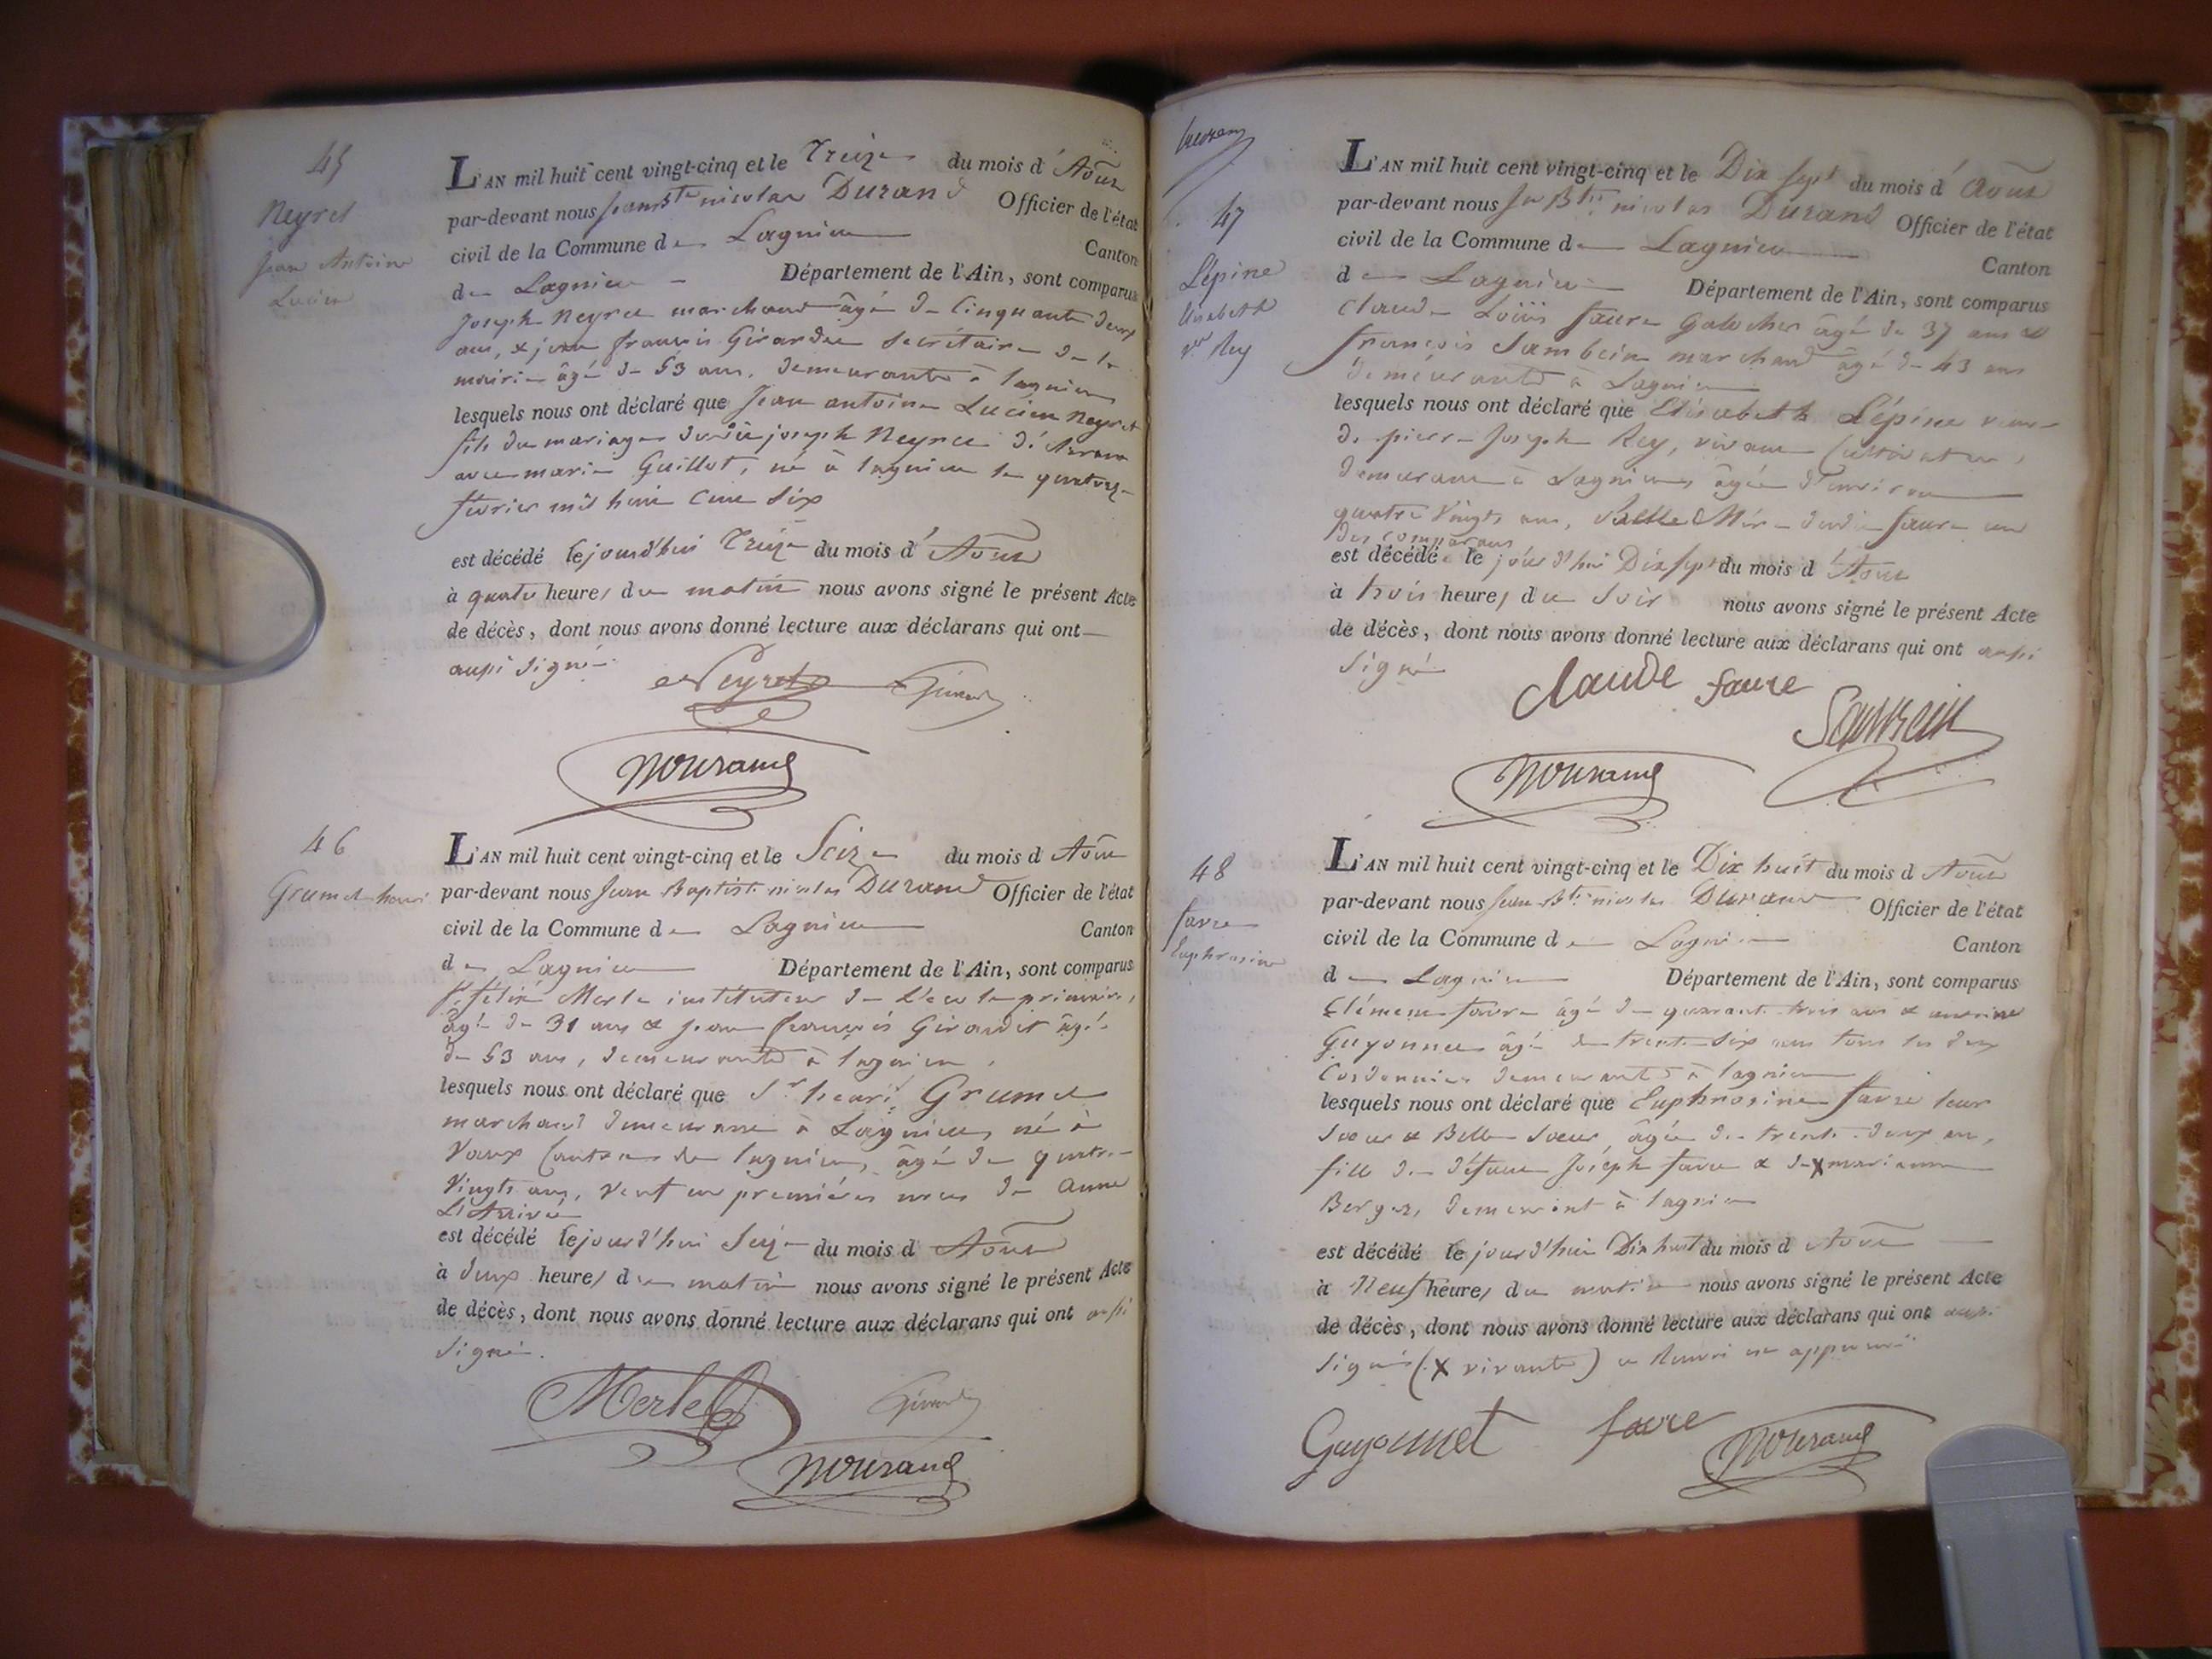 45
Neyret
Jean Antoine
Lucien
L'AN mil huit cent vingt-cinq et le Treize du mois d'Août
par-devant nous Jean Bte nicolas DURAND Officier de l'état
civil de la Commune de Lagnieu Canton
de Lagnieu Département de l'Ain, sont comparus
Joseph Neyret marchand âgé de Cinquante deux
ans, & jean françois Girardin Secrétaire de la
mairie âgé de 53 ans, demeurants à lagnieu
lesquels nous ont déclaré que Jean antoine Lucien Neyret
fils du mariage dudit joseph Neyret
avec marie Guillot, né à lagnieu le quatorze
février mil huit Cent Six
est décédé le jourd'hui Treize du mois d'Août
à quatre heures du matin nous avons signé le présent Acte
de décès, dont nous avons donné lecture aux déclarans qui ont
aussi signé
Neyret Girardin
NDurand
46
Grumet henri
L'AN mil huit cent vingt-cinq et le Seize du mois d Août
par-devant nous Jean Baptiste nicolas DURAND Officier de l'état
civil de la Commune de Lagnieu Canton
de Lagnieu Département de l'Ain, sont comparus
Merle instituteur de l'école primaire,
âgé de 31 ans & jean françois Girardin âgé
de 53 ans, demeurants à lagnieu,
lesquels nous ont déclaré que Sr. henri Grumet
marchand demeurant à Lagnieu, né à
Vaux Canton de lagnieu, âgé de quatre
vingts ans, veuf en premières noces de anne
est décédé le jourd'hui Seize du mois d Août
à deux heures du matin nous avons signé le présent Acte
de décès, dont nous avons donné lecture aux déclarans qui ont aussi
signé.
Merle Girardin
NDurand
47
Lépine
Elisabeth
ve Rey
L'AN mil huit cent vingt-cinq et le Dix Sept du mois d'Août
par-devant nous Jn Bte nicolas DURAND Officier de l'état
civil de la Commune de Lagnieu Canton
de Lagnieu Département de l'Ain, sont comparus
Claude Loüis faure Galocher âgé de 37 ans &
françois Sambein marchand âgé de 43 ans
demeurants à Lagnieu
lesquels nous ont déclaré que Elisabeth Lépine veuve
de pierre Joseph Rey, vivant Cultivateur,
demeurant à Lagnieu, âgée d'environ
quatre Vingts ans, Mère dudit faure un
des comparans
est décédé le jourd'hui Dix sept du mois d'Août
à trois heures du Soir nous avons signé le présent Acte
de décès, dont nous avons donné lecture aux déclarans qui ont aussi
signé
Claude faure
Sambein
NDurand
48
favre
Euphrosine
L'AN mil huit cent vingt-cinq et le Dix huit du mois d Août
par-devant nous Jean Bte nicolas DURAND Officier de l'état
civil de la Commune de Lagnieu Canton
de Lagnieu Département de l'Ain, sont comparus
Clément favre âgé de quarante trois ans &
Guyonnet âgé de trente Six ans tous les deux
Cordonniers demeurants à lagnieu
lesquels nous ont déclaré que Euphrosine favre leur
Soeur & Belle Soeur, âgée de trente deux ans,
fille de défunt Joséph favre & de X marianne
Berger, demeurant à lagnieu
est décédé le jourd'hui Dix huit du mois d Août
à Neuf heures du matin nous avons signé le présent Acte
de décès, dont nous avons donné lecture aux déclarans qui ont aussi
signé (X vivante) le Renvoi est approuvé
Guyonnet favre NDurand